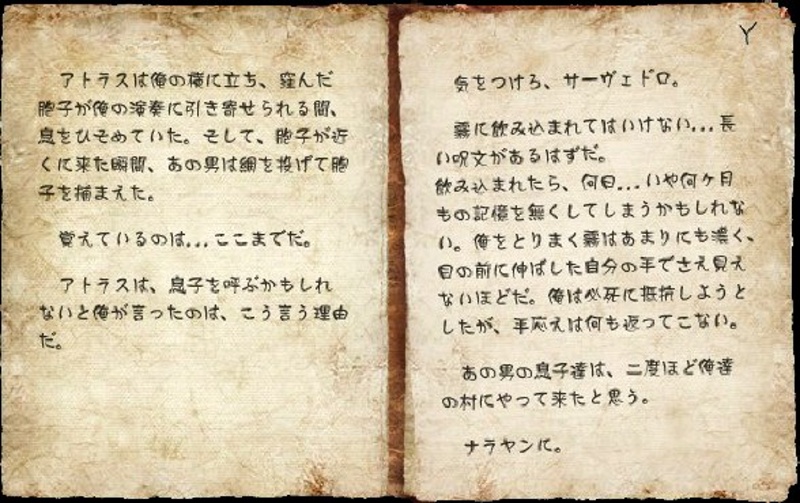 アトラスは俺の横に立ち、窪んだ
胞子が俺の演奏に引き寄せられる間、
息をひそめていた。そして、胞子が近
くに来た瞬間、あの男は網を投げて胞
子を捕まえた。
覚えているのは...ここまでだ。
アトラスは、息子を呼ぶかもしれ
ないと俺が言ったのは、こう言う理由
だ。
Y
気をつけろ、サーヴェドロ。
霧に飲み込まれてはいけない...長
い呪文があるはずだ。
飲み込まれたら、何日...いや何ヶ月
もの記憶を無くしてしまうかもしれな
い。俺をとりまく霧はあまりにも濃く、
目の前に伸ばした自分の手でさえ見え
ないほどだ。俺は必死に抵抗しようと
したが、手応えは何も返ってこない。
あの男の息子達は、二度ほど俺達
の村にやって来たと思う。
ナラヤンに。